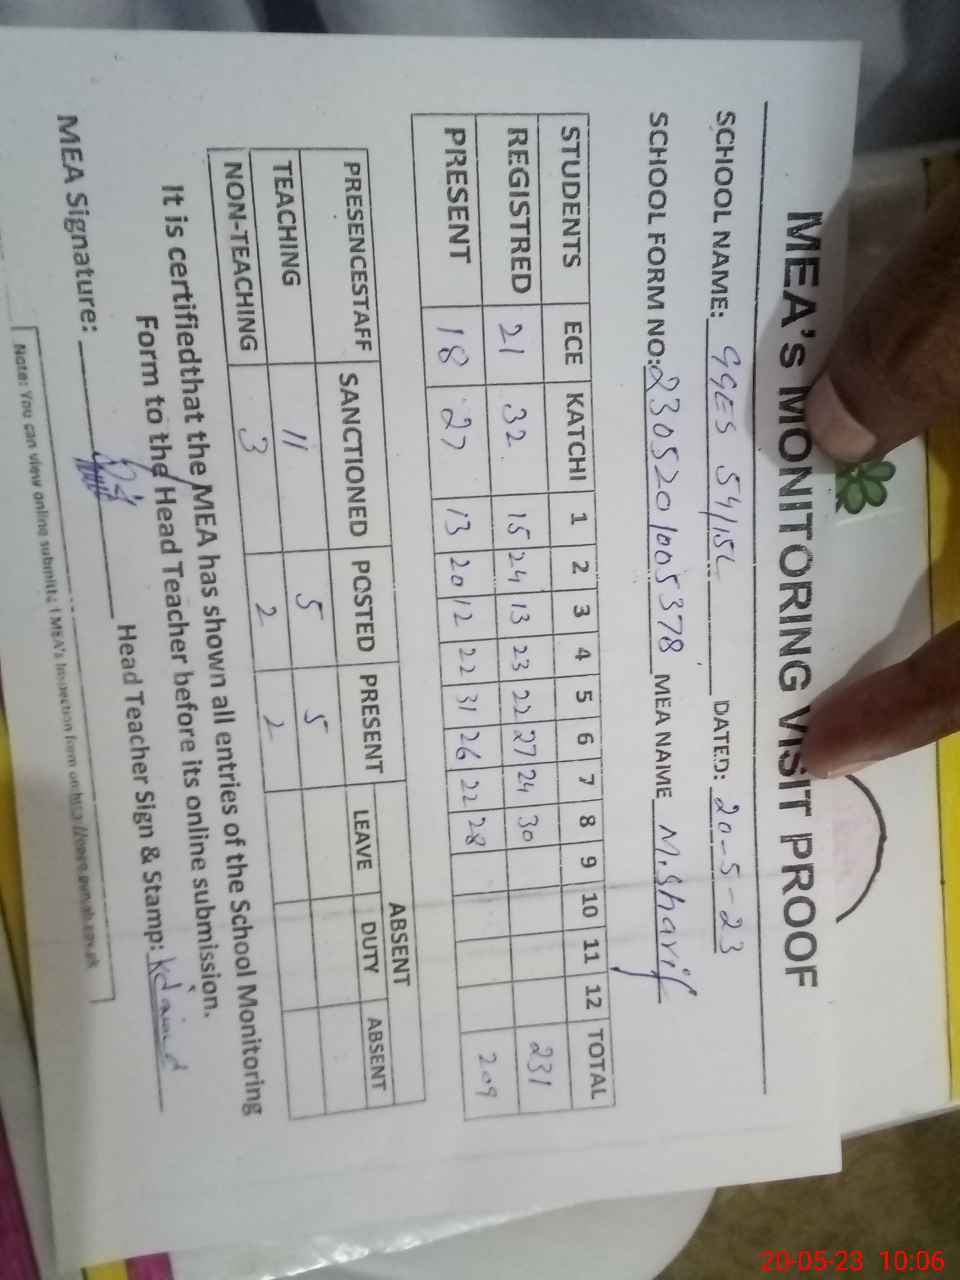 MEA's MONITORING VISIT PROOF
SCHOOL NAME: GGES 54/15L DATED: 20-5-23
SCHOOL FORM NO: 2305201005378 MEA NAME M.Sharif
STUDENTS ECE KATCHI 1 2 3 4 5 6 7 8 9 10 11 12 TOTAL
REGISTRED 21 32 15 24 13 23 22 27 24 30 231
PRESENT 18 27 13 20 12 22 31 26 22 28 209
PRESENCESTAFF SANCTIONED POSTED PRESENT ABSENT
LEAVE DUTY ABSENT
TEACHING 11 5 5
NON-TEACHING 3 2 2
It is certifiedthat the MEA has shown all entries of the School Monitoring
Form to the Head Teacher before its online submission.
MEA Signature: Head Teacher Sign & Stamp:
Note: You can view online submitted MEA's Inspection form on
20-05-23 10:06